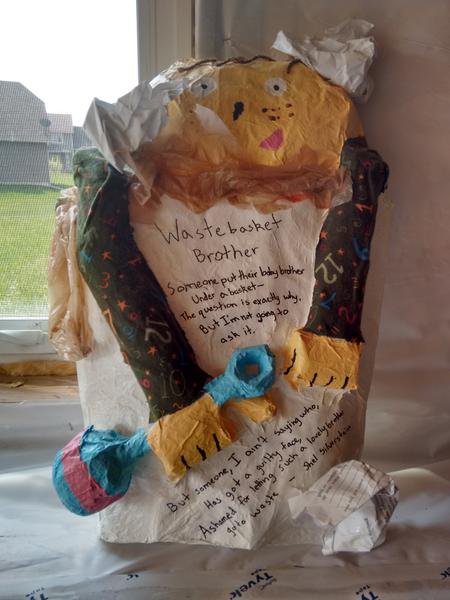 Wastebasket
Brother
Someone put their baby brother
Under a basket—
The question is exactly why,
But I'm not going to
ask it.
But someone, I ain't saying who,
Has got a guilty face,
Ashamed for letting such a lovely brother
go to waste — Shel Silverstein
12
12
10
Tyvek